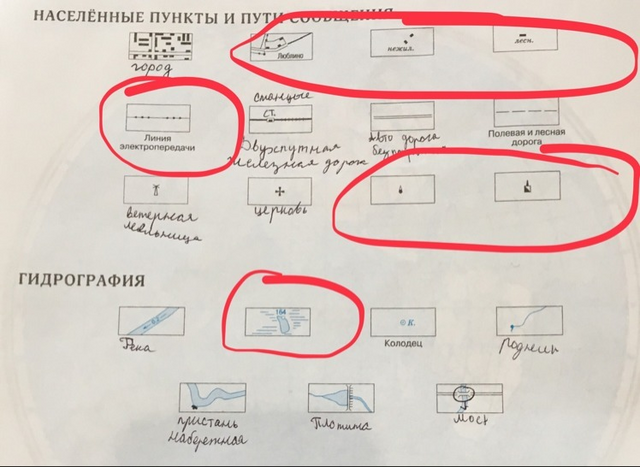 НАСЕЛЁННЫЕ ПУНКТЫ И ПУТИ СООБЩЕНИЯ
Люблино
нежил.
лесн.
город
станцые
СТ.
Линия
электропередачи
Двухпутная
железная дорога
Авто дорога
Полевая и лесная
дорога
ветерная
мельница
церковь
ГИДРОГРАФИЯ
184
К.
Река
Колодец
Родник
пристань
набережная
Плотина
Мост